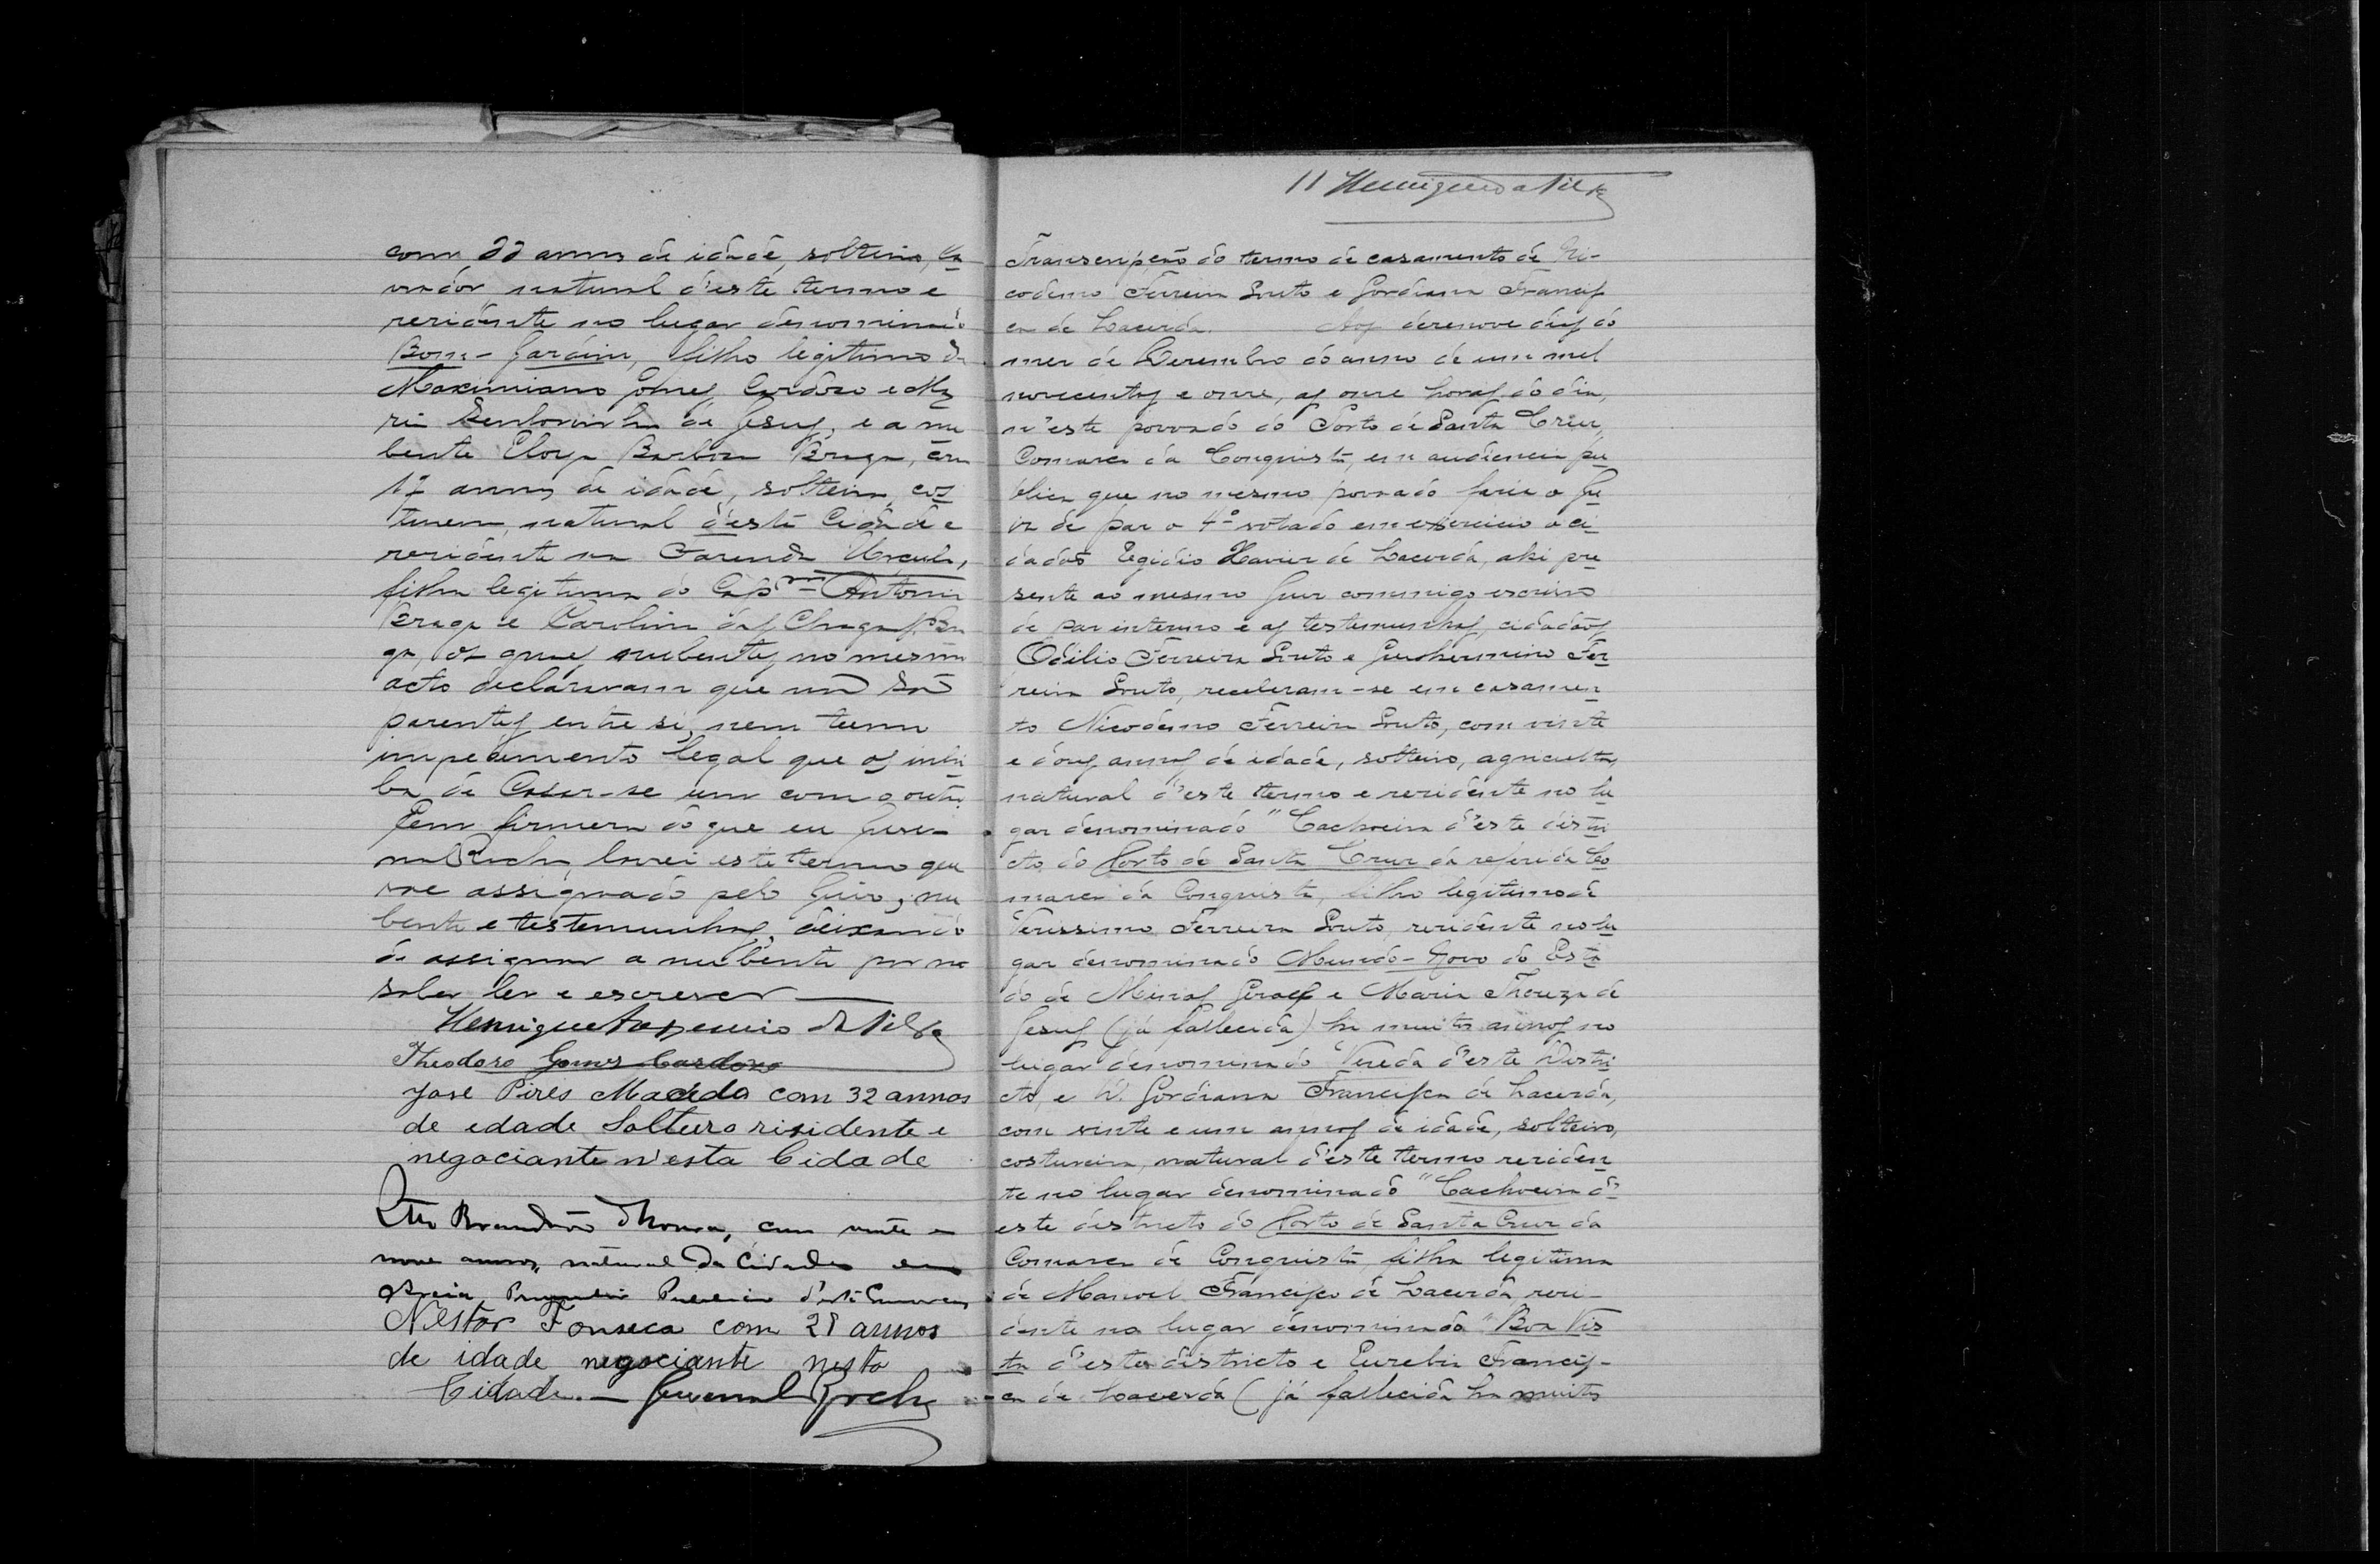 com 22 annos de idade, solteiro, la
vrador natural d'este termo e
rezidente no lugar denominado
Bom-Jardim, filho legitimo de
Maximiano Gomes Cardozo e Ma
ria Senhorinha de Jesus, e a nu
bente Elorza Barboza Braga, com
17 annos de idade, solteira, cos
tureira, natural desta Cidade e
rezidente na Fazenda
filha legitima do Capm Antonio
Braga e Carolina das Chagas Bra
ga, os quaes nubentes, no mesmo
acto declararam que não são
parentes entre si, nem teem
impedimento legal que os inhi
ba de Casar-se um com o outro
E em firmeza do que eu Juve
nal Rocha, lavrei este termo que
vae assignado pelo Juiz, nu
bente e testemunhas, deixando
de assignar a nubente por não
saber ler e escrever
Henrique da Silva
Theodoro Gomes Cardozo
José Pires Macêdo com 32 annos
de edade Solteiro rizidente e
negociante n'esta Cidade
Brandão Moura, com vinte e
nove annos, natural da Cidade
Publico d'esta Comarca
Nestor Fonseca com 28 annos
de idade negociante nesta
Cidade. — Juvenal Rocha
11 Henrique da Silva
Transcripção do termo de casamento de Ni-
codemo Ferreira Souto e Gordiana Francis
ca de Lacerda. Aos dezenove dias do
mez de Dezembro do anno de um mil
novecentos e onze, as onze horas do dia,
n'este povoado do Porto de Santa Cruz,
Comarca da Conquista, em audiencia pu
blica que no mesmo povoado fazia o Ju
iz de paz o 4º votado em exercicio o ci
dadão Egidio Xavier de Lacerda, ahi pre
sente ao mesmo Juiz commigo escrivão
de paz interino e as testemunhas, cidadãos
Odilio Ferreira Souto e Guilhermino Fer
reira Souto, receberam-se em casamen
to Nicodemo Ferreira Souto, com vinte
e dous annos de idade, solteiro, agricultor,
natural d'este termo e rezidente no lu
gar denominado "Cachoeira d'este distri
cto do Porto de Santa Cruz da referida Co
marca da Conquista, filho legitimo de
Verissimo Ferreira Souto, rezidente no lu
gar denominado Mundo-Novo do Esta
do de Minas Geraes e Maria Thereza de
Jesus (já fallecida) ha muitos annos no
lugar denominado Vereda d'este Distri
cto, e D. Gordiana Francisca de Lacerda,
com vinte e um annos de idade, solteira,
costureira, natural d'este termo reziden
te no lugar denominado "Cachoeira d'
este districto do Porto de Santa Cruz da
Comarca de Conquista, filha legitima
de Manoel Francisco de Lacerda, rezi-
dente no lugar denominado "Boa Vis
ta d'este districto e Euzebia Francis-
ca de Lacerda (já fallecida ha muitos